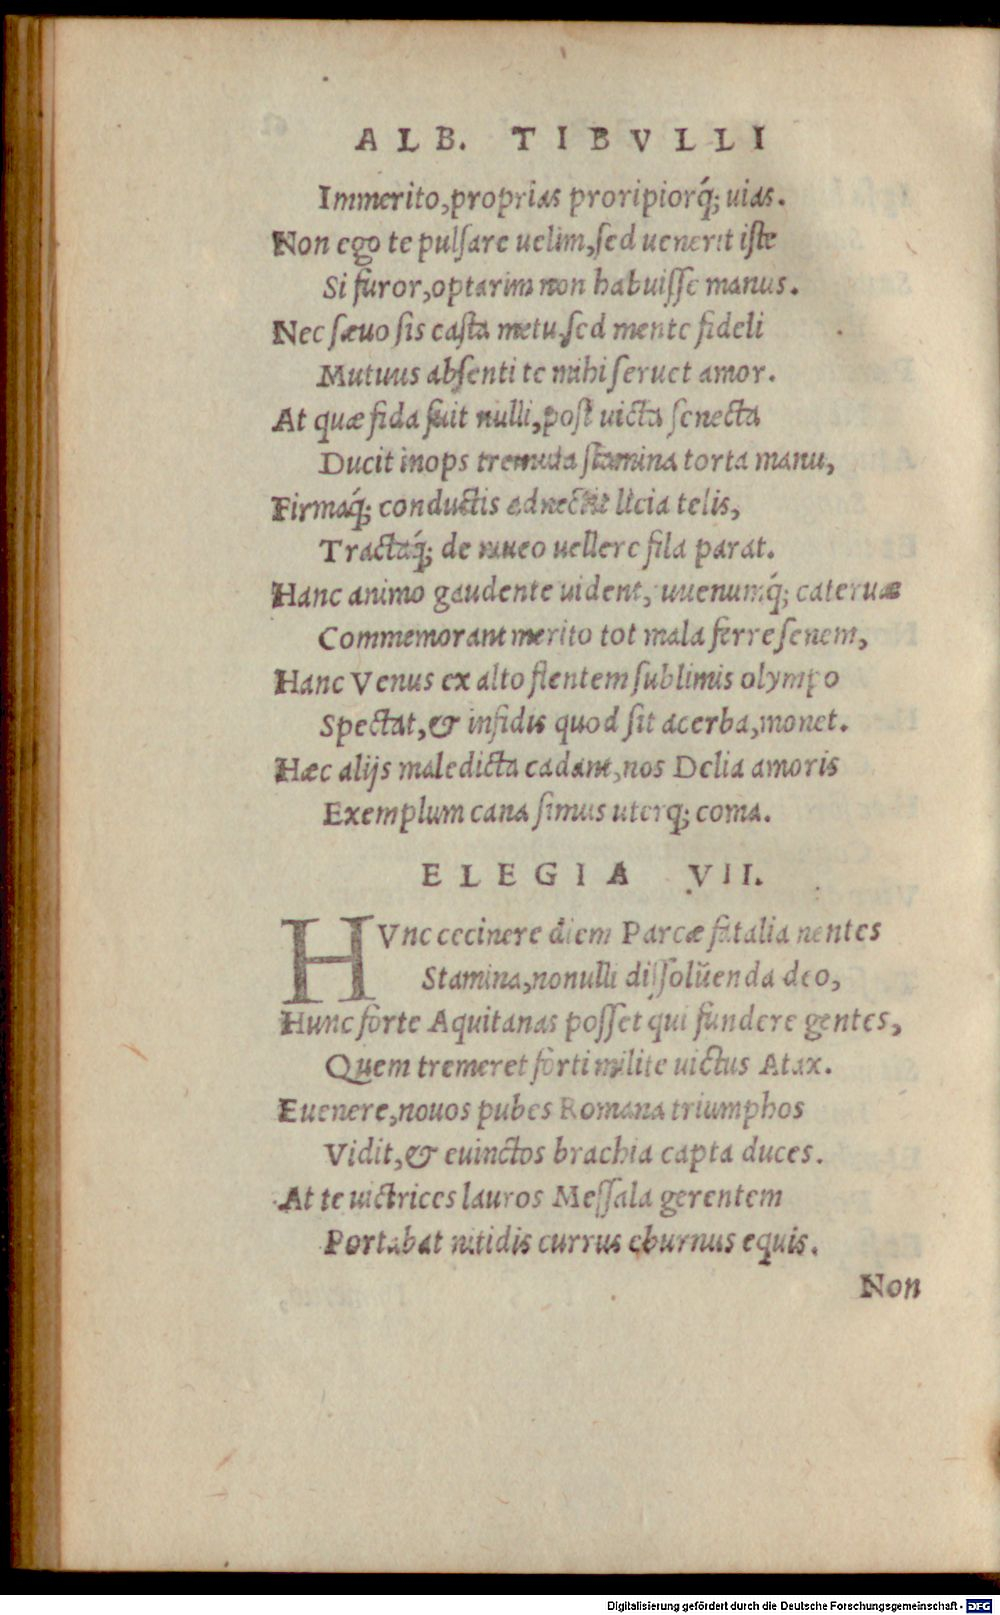 ALB. TIBVLLI
Immerito, proprias proripiorq́; uias.
Non ego te pulſare uelim, ſed uenerit iſte
Si furor, optarim non habuiſſe manus.
Nec ſæuo ſis caſta metu, ſed mente fideli
Mutuus abſenti te mihi ſeruet amor.
At quæ fida fuit nulli, poſt uicta ſenecta
Ducit inops tremula ſtamina torta manu,
Firmaq́; conductis adnectit licia telis,
Tractaq́; de niueo uellere fila parat.
Hanc animo gaudente uident, iuuenumq́; cateruæ
Commemorant merito tot mala ferre ſenem,
Hanc Venus ex alto flentem ſublimis olympo
Spectat, & infidis quod ſit acerba, monet.
Hæc alijs maledicta cadant, nos Delia amoris
Exemplum cana ſimus uterq; coma.
ELEGIA VII.
HVnc cecinere diem Parcæ fatalia nentes
Stamina, nonulli diſſolüenda deo,
Hunc forte Aquitanas poſſet qui fundere gentes,
Quem tremeret forti milite uictus Atax.
Euenere, nouos pubes Romana triumphos
Vidit, & euinctos brachia capta duces.
At te uictrices lauros Meſſala gerentem
Portabat nitidis currus eburnus equis.
Non
Digitalisierung gefördert durch die Deutsche Forschungsgemeinschaft - DFG